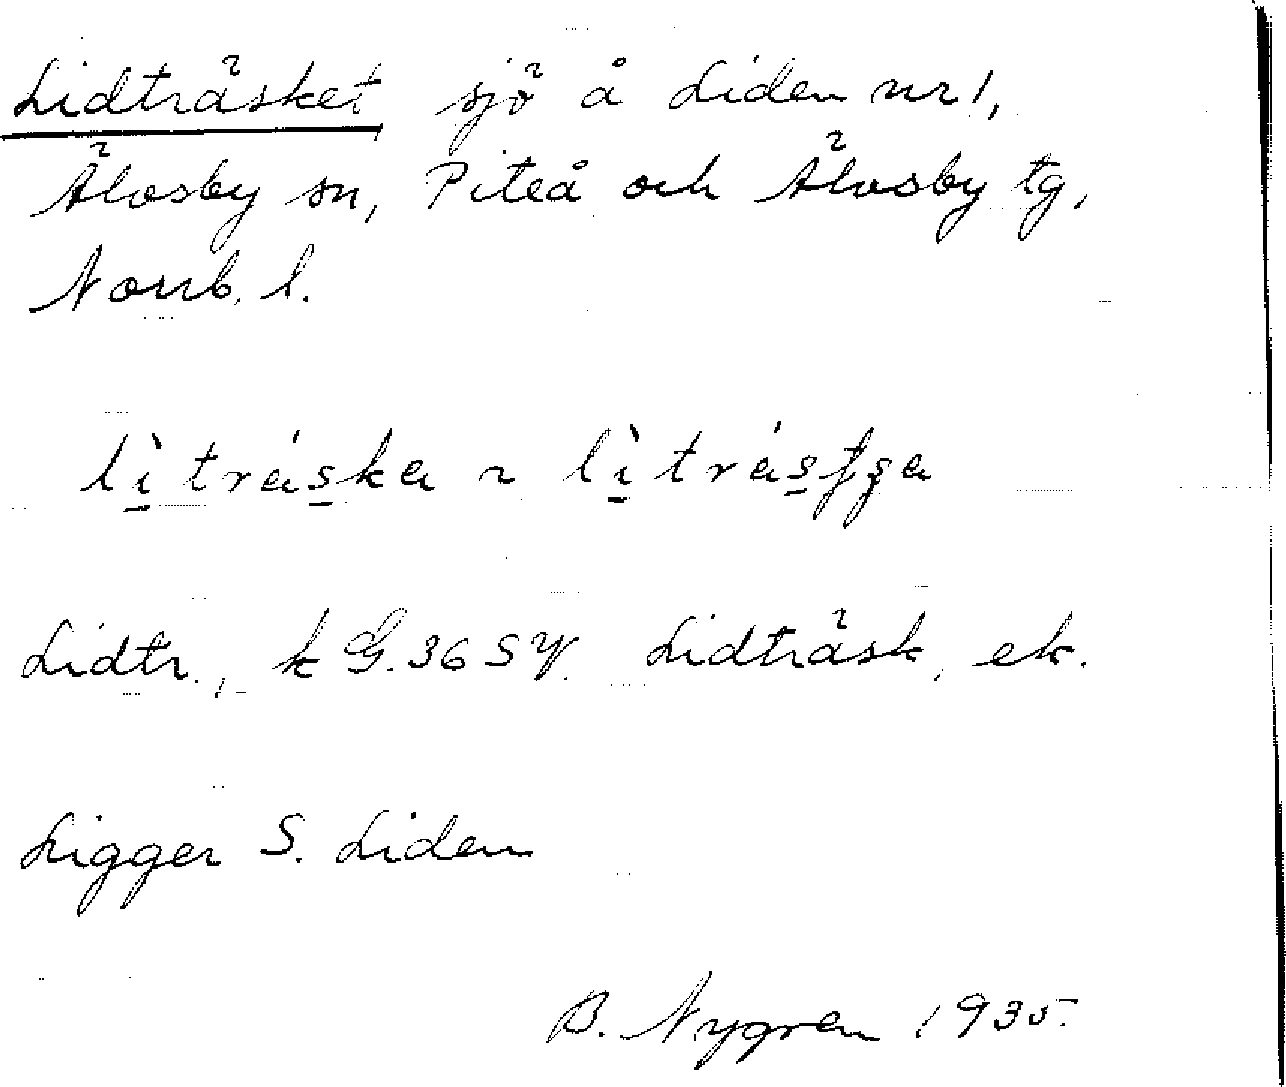 Lidträsket sjö å Liden nr 1,
Älvsby sn, Piteå och Älvsby tg,
Norrb. l.
lì̱ trás̱ka ~ lì̱ trás̱
Lidtr., k G. 36 SV. Lidträsk, ek.
Ligger S. Liden
B. Nygren 1935.